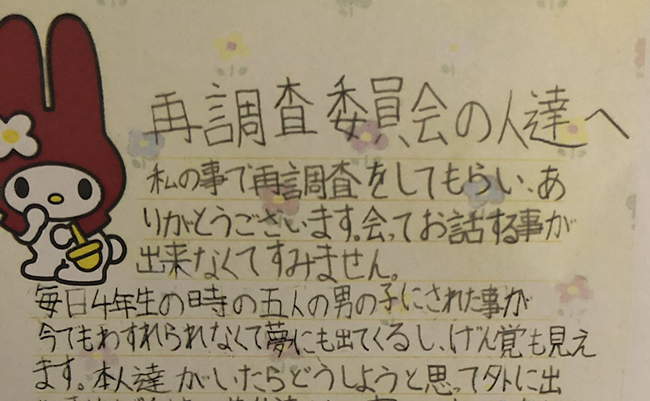 再調査委員会の人達へ
私の事で再調査をしてもらい、あ
りがとうございます。会ってお話する事が
出来なくてすみません。
毎日4年生の時の五人の男の子にされた事が
今でもわすれられなくて夢にも出てくるし、げん覚も見え
ます。本人達がいたらどうしようと思って外に出